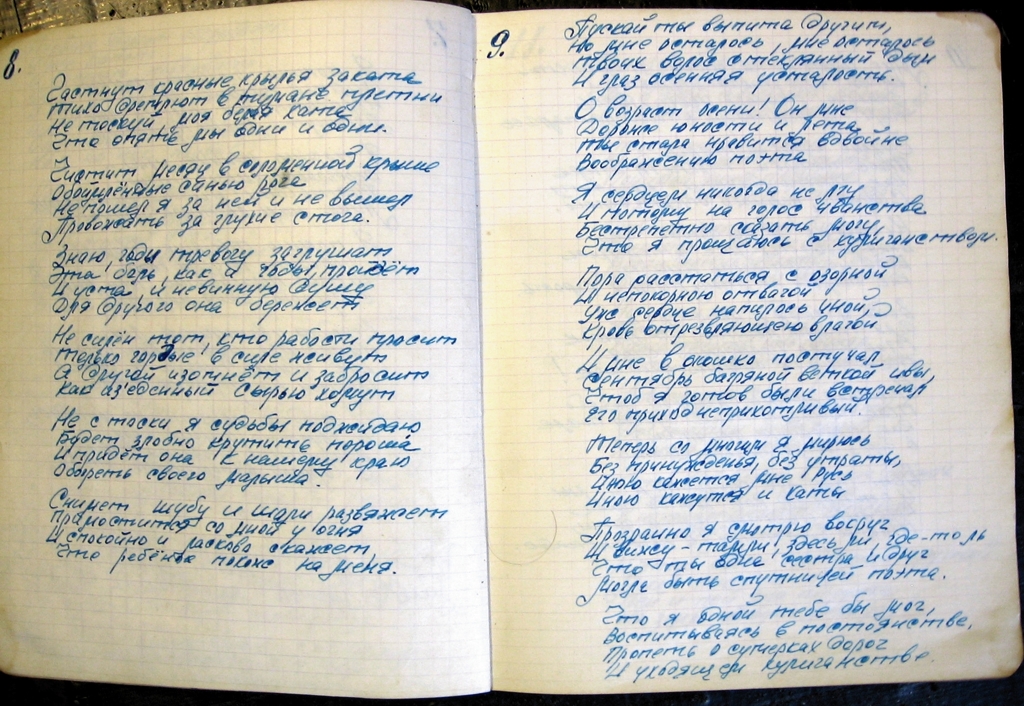 8.
Гаснут красные крылья заката
Тихо дремлют в тумане плетни
Не тоскуй, моя белая хата
Что опять мы одни и одни.
Чистит месяц в соломенной крыше
Обоймлённые синью рога
Не пошел я за ней и не вышел
Провожать за глухие стога.
Знаю, годы тревогу заглушат
Эта боль, как и годы, пройдёт
И уста, и невинную душу
Для другого она бережёт
Не силён тот, кто радости просит
Только гордые в силе живут
А другой изомнёт и забросит
Как изъеденный сырью хомут
Не с тоски я судьбы поджидаю
Будет злобно крутить пороша
И придёт она к нашему краю
Обогреть своего малыша.
Снимет шубу и шали развяжет
Примостится со мной у огня
И спокойно и ласково скажет,
Что ребёнок похож на меня.
9.
Пускай ты выпита другим,
Но мне осталось, мне осталось
Твоих волос стеклянный дым
И глаз осенняя усталость.
О возраст осени! Он мне
Дороже юности и лета
Ты стала нравится вдвойне
Воображению поэта
Я сердцем никогда не лгу
И потому на голос чванства
Бестрепетно сказать могу,
Что я прощаюсь с хулиганством.
Пора расстаться с озорной
И непокорною отвагой
Уж сердце напилось иной,
Кровь отрезвляющею брагой
И мне в окошко постучал
Сентябрь багряной веткой ивы,
Чтоб я готов был и встречал
Его приход неприхотливый.
Теперь со многим я мирюсь
Без принужденья, без утраты,
Иною кажется мне Русь
Иною кажутся и хаты
Прозрачно я смотрю вокруг
И вижу - там ли, здесь ли, где-то ль
Что ты одна сестра и друг
Могла быть спутницей поэта.
Что я одной тебе бы мог,
Воспитываясь в постоянстве,
Пропеть о сумерках дорог
И уходящем хулиганстве.